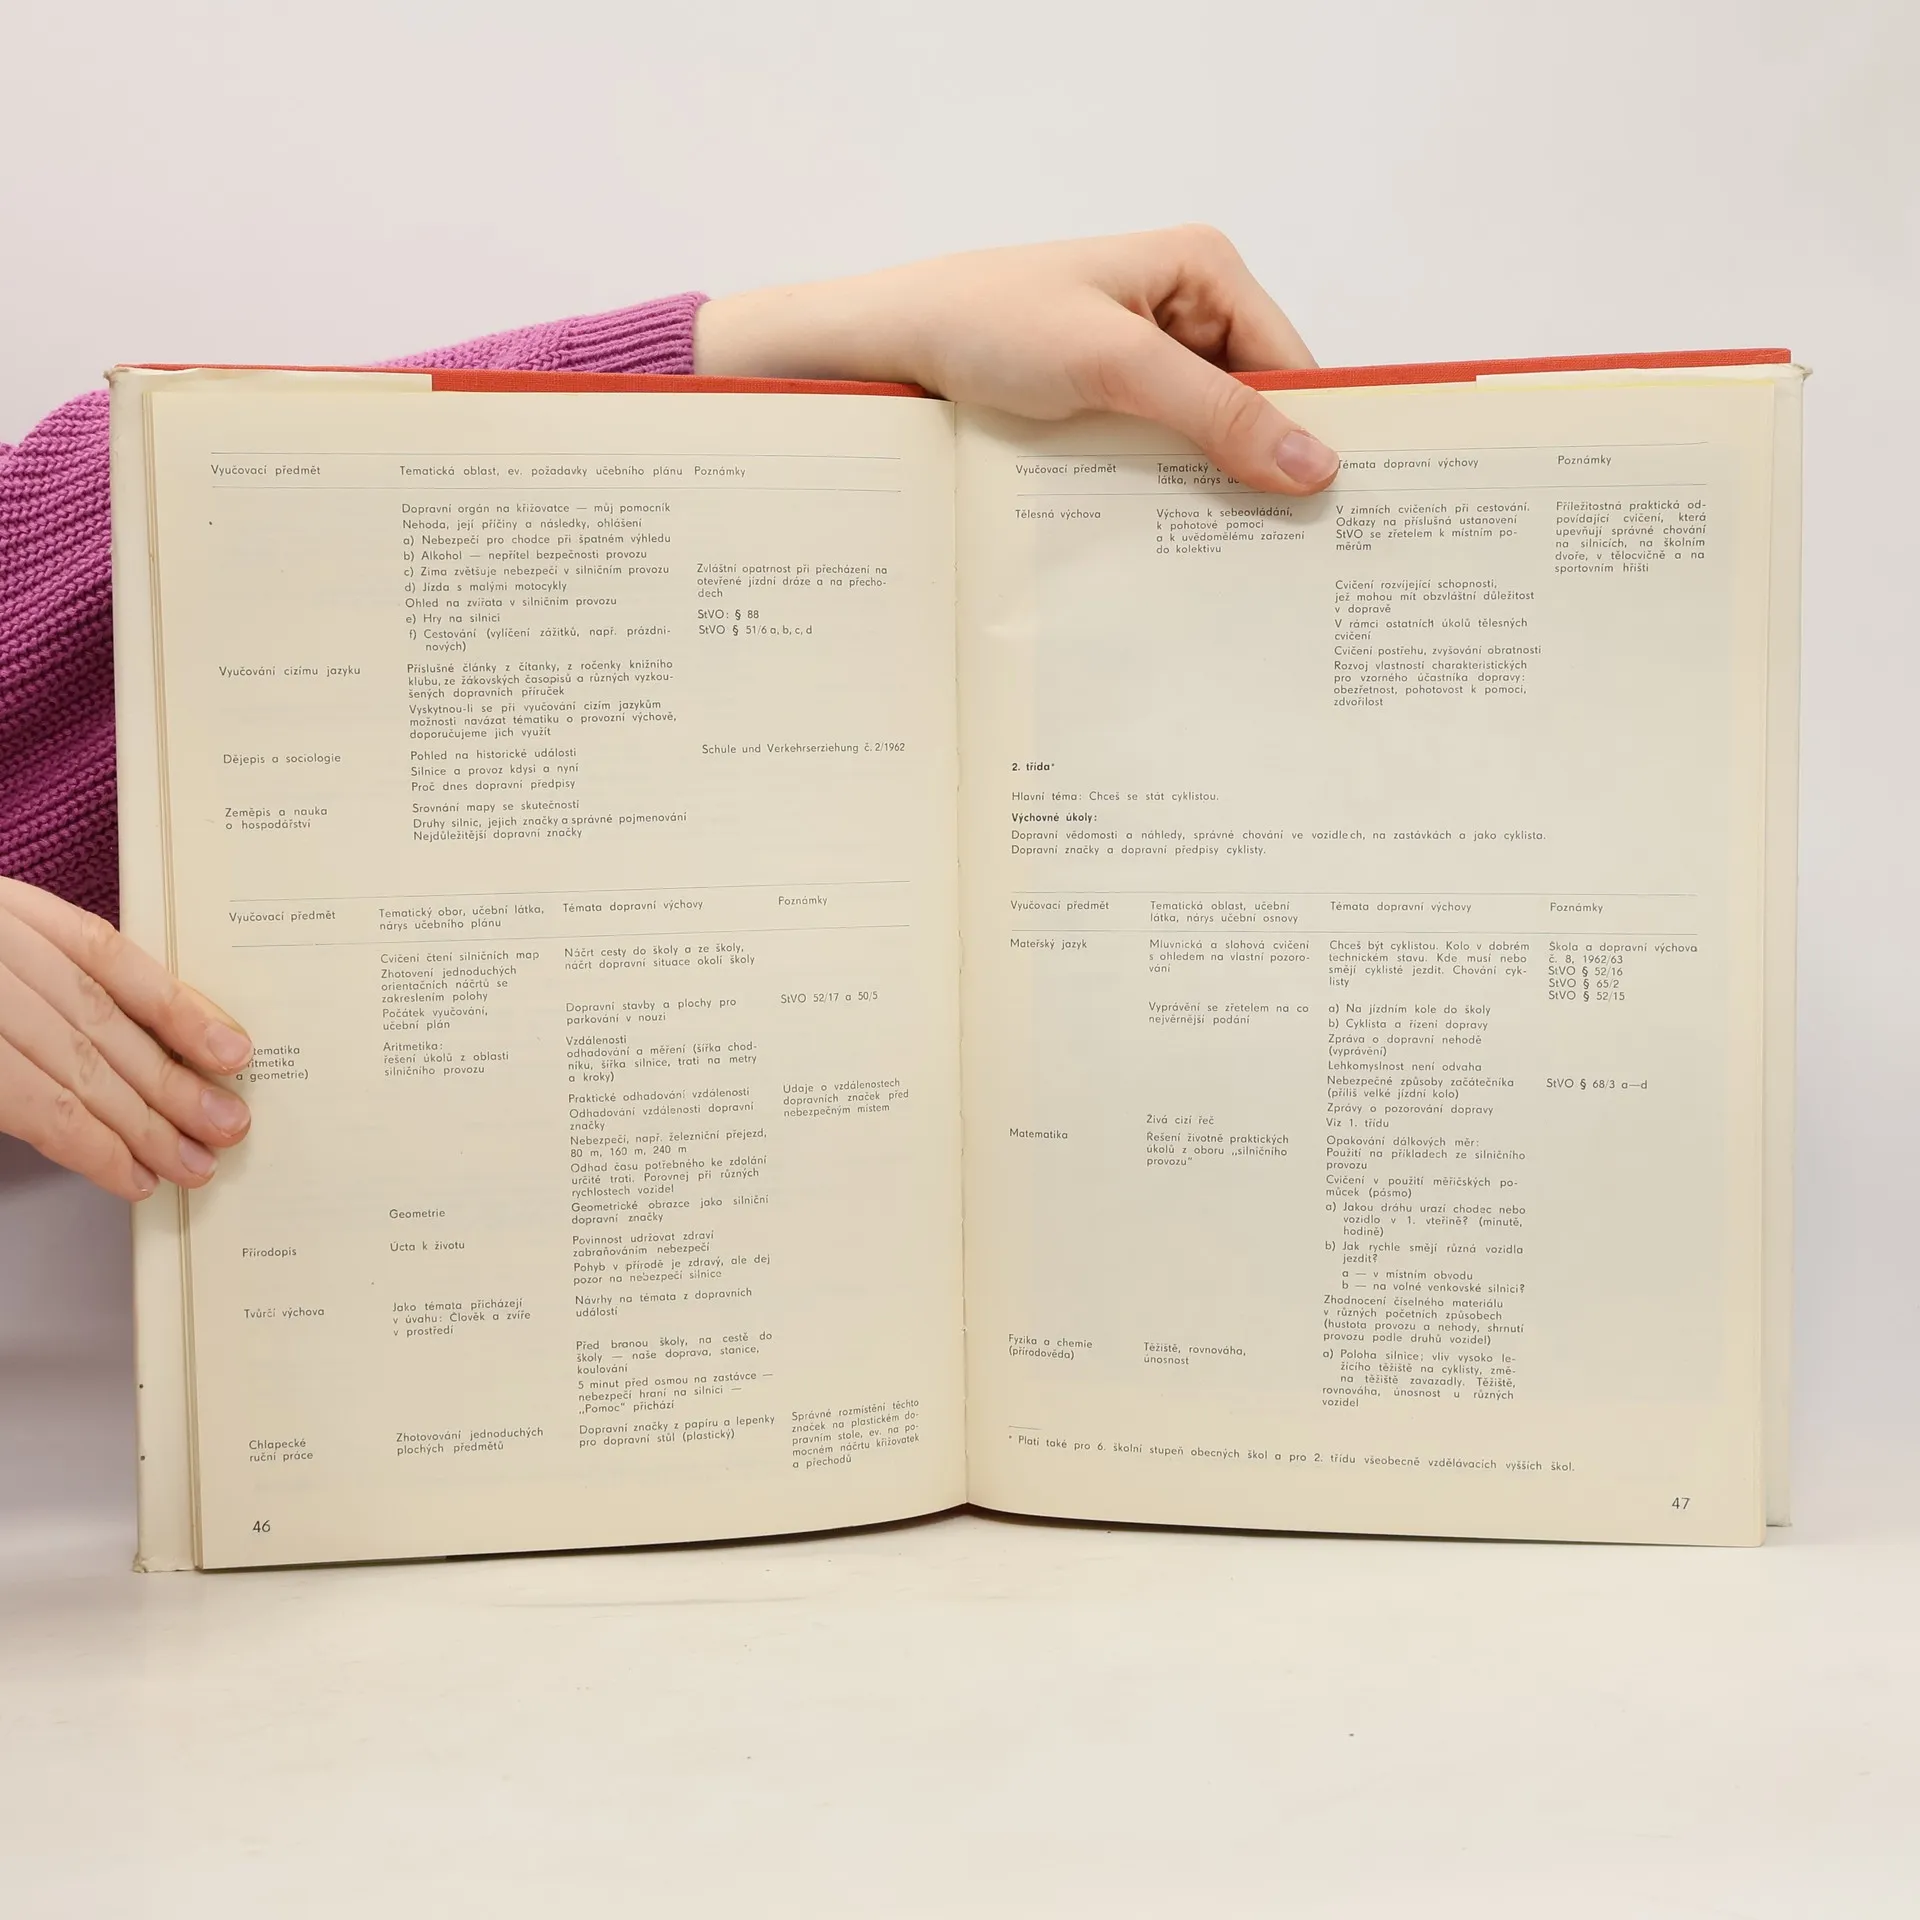 Vyučovací předmět
Tematická oblast, ev. požadavky učebního plánu
Poznámky
Dopravní orgán na křižovatce — můj pomocník
Nehoda, její příčiny a následky, ohlášení
a) Nebezpečí pro chodce při špatném výhledu
b) Alkohol — nepřítel bezpečnosti provozu
c) Zima zvětšuje nebezpečí v silničním provozu
d) Jízda s malými motocykly
Ohled na zvířata v silničním provozu
e) Hry na silnici
f) Cestování (vylíčení zážitků, např. prázdni-
nových)
Zvláštní opatrnost při přecházení na
otevřené jízdní dráze a na přecho-
dech
StVO: § 88
StVO § 51/6 a, b, c, d
Vyučování cizímu jazyku
Příslušné články z čítanky, z ročenky knižního
klubu, ze žákovských časopisů a různých vyzkou-
šených dopravních příruček
Vyskytnou-li se při vyučování cizím jazykům
možnosti navázat tématiku o provozní výchově,
doporučujeme jich využít
Dějepis a sociologie
Pohled na historické události
Silnice a provoz kdysi a nyní
Proč dnes dopravní předpisy
Schule und Verkehrserziehung č. 2/1962
Zeměpis a nauka
o hospodářství
Srovnání mapy se skutečností
Druhy silnic, jejich značky a správné pojmenování
Nejdůležitější dopravní značky
Vyučovací předmět
Tematický obor, učební látka,
nárys učebního plánu
Témata dopravní výchovy
Poznámky
Cvičení čtení silničních map
Zhotovení jednoduchých
orientačních náčrtů se
zakreslením polohy
Počátek vyučování,
učební plán
Náčrt cesty do školy a ze školy,
náčrt dopravní situace okolí školy
Dopravní stavby a plochy pro
parkování v nouzi
StVO 52/17 a 50/5
tematika
itmetika
a geometrie)
Aritmetika:
řešení úkolů z oblasti
silničního provozu
Vzdálenosti
odhadování a měření (šířka chod-
níku, šířka silnice, trati na metry
a kroky)
Praktické odhadování vzdálenosti
Odhadování vzdálenosti dopravní
značky
Nebezpečí, např. železniční přejezd,
80 m, 160 m, 240 m
Odhad času potřebného ke zdolání
určité trati. Porovnej při různých
rychlostech vozidel
Údaje o vzdálenostech
dopravních značek před
nebezpečným místem
Geometrie
Geometrické obrazce jako silniční
dopravní značky
Přírodopis
Úcta k životu
Povinnost udržovat zdraví
zabraňováním nebezpečí
Pohyb v přírodě je zdravý, ale dej
pozor na nebezpečí silnice
Tvůrčí výchova
Jako témata přicházejí
v úvahu: Člověk a zvíře
v prostředí
Návrhy na témata z dopravních
událostí
Před branou školy, na cestě do
školy — naše doprava, stanice,
koulování
5 minut před osmou na zastávce —
nebezpečí hraní na silnici —
„Pomoc“ přichází
Chlapecké
ruční práce
Zhotovování jednoduchých
plochých předmětů
Dopravní značky z papíru a lepenky
pro dopravní stůl (plastický)
Správné rozmístění těchto
značek na plastickém do-
pravním stole, ev. na po-
mocném náčrtu křižovatek
a přechodů
46
Vyučovací předmět
Tematický
látka, nárys
Témata dopravní výchovy
Poznámky
Tělesná výchova
Výchova k sebeovládání,
k pohotové pomoci
a k uvědomělému zařazení
do kolektivu
V zimních cvičeních při cestování.
Odkazy na příslušná ustanovení
StVO se zřetelem k místním po-
měrům
Cvičení rozvíjející schopnosti,
jež mohou mít obzvláštní důležitost
v dopravě
V rámci ostatních úkolů tělesných
cvičení
Cvičení postřehu, zvyšování obratnosti
Rozvoj vlastností charakteristických
pro vzorného účastníka dopravy:
obezřetnost, pohotovost k pomoci,
zdvořilost
Příležitostná praktická od-
povídající cvičení, která
upevňují správné chování
na silnicích, na školním
dvoře, v tělocvičně a na
sportovním hřišti
2. třída*
Hlavní téma: Chceš se stát cyklistou.
Výchovné úkoly:
Dopravní vědomosti a náhledy, správné chování ve vozidlech, na zastávkách a jako cyklista.
Dopravní značky a dopravní předpisy cyklisty.
Vyučovací předmět
Tematická oblast, učební
látka, nárys učební osnovy
Témata dopravní výchovy
Poznámky
Mateřský jazyk
Mluvnická a slohová cvičení
s ohledem na vlastní pozoro-
vání
Vyprávění se zřetelem na co
nejvěrnější podání
Živá cizí řeč
Chceš být cyklistou. Kolo v dobrém
technickém stavu. Kde musí nebo
smějí cyklisté jezdit. Chování cyk-
listy
a) Na jízdním kole do školy
b) Cyklista a řízení dopravy
Zpráva o dopravní nehodě
(vyprávění)
Lehkomyslnost není odvaha
Nebezpečné způsoby začátečníka
(příliš velké jízdní kolo)
Zprávy o pozorování dopravy
Viz 1. třídu
Škola a dopravní výchova
č. 8, 1962/63
StVO § 52/16
StVO § 65/2
StVO § 52/15
StVO § 68/3 a—d
Matematika
Řešení životně praktických
úkolů z oboru „silničního
provozu“
Opakování dálkových měr:
Použití na příkladech ze silničního
provozu
Cvičení v použití měřičských po-
můcek (pásmo)
a) Jakou dráhu urazí chodec nebo
vozidlo v 1. vteřině? (minutě,
hodině)
b) Jak rychle smějí různá vozidla
jezdit?
a — v místním obvodu
b — na volné venkovské silnici?
Zhodnocení číselného materiálu
v různých početních způsobech
(hustota provozu a nehody, shrnutí
provozu podle druhů vozidel)
Fyzika a chemie
(přírodověda)
Těžiště, rovnováha,
únosnost
a) Poloha silnice; vliv vysoko le-
žícího těžiště na cyklisty, změ-
na těžiště zavazadly. Těžiště,
rovnováha, únosnost u různých
vozidel
* Platí také pro 6. školní stupeň obecných škol a pro 2. třídu všeobecně vzdělávacích vyšších škol.
47